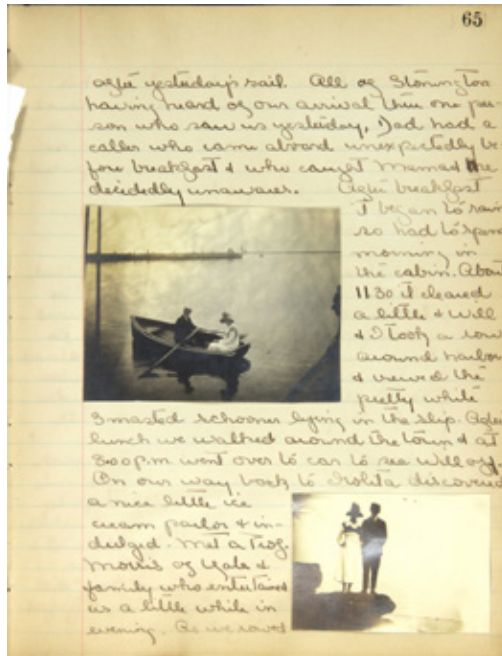 65
after yesterday's sail. All of Stonington
having heard of our arrival thru one per
son who saw us yesterday, Dad had a
caller who came aboard unexpectedly be
fore breakfast & who caught Mama & me
decidedly unawares. After breakfast
it began to rain
so had to spend
morning in
the cabin. About
11.30 it cleared
a little & Will
& I took a row
around harbor
& viewed the
pretty white
3 masted schooner lying in the slip. After
lunch we walked around the town & at
8:00 p.m. went over to car to see Will off.
On our way back to Irolita discovered
a nice little ice
cream parlor & in-
dulged. Met a Prof.
Morris of Yale &
family who entertained
us a little while in
evening. As we rowed